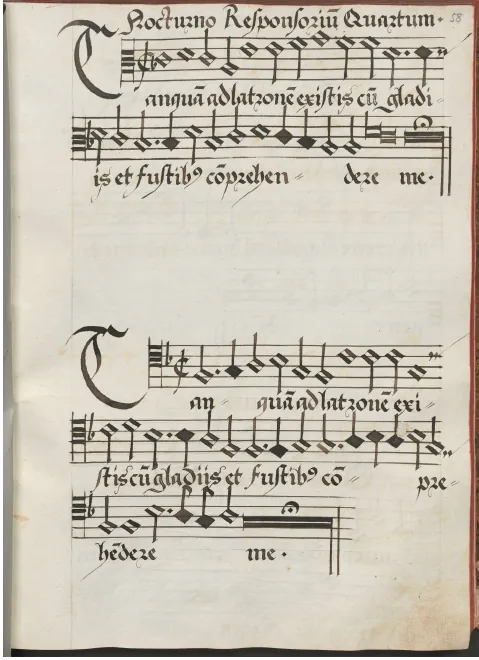 Nocturno Responsoriū Quartum. 58
Tanquā ad latronē existis cū gladi=
is et fustibꝰ cōprehen= dere me.
Tan= quā ad latronē exi=
stis cū gladiis et fustibꝰ cō= pre=
hēdere me.